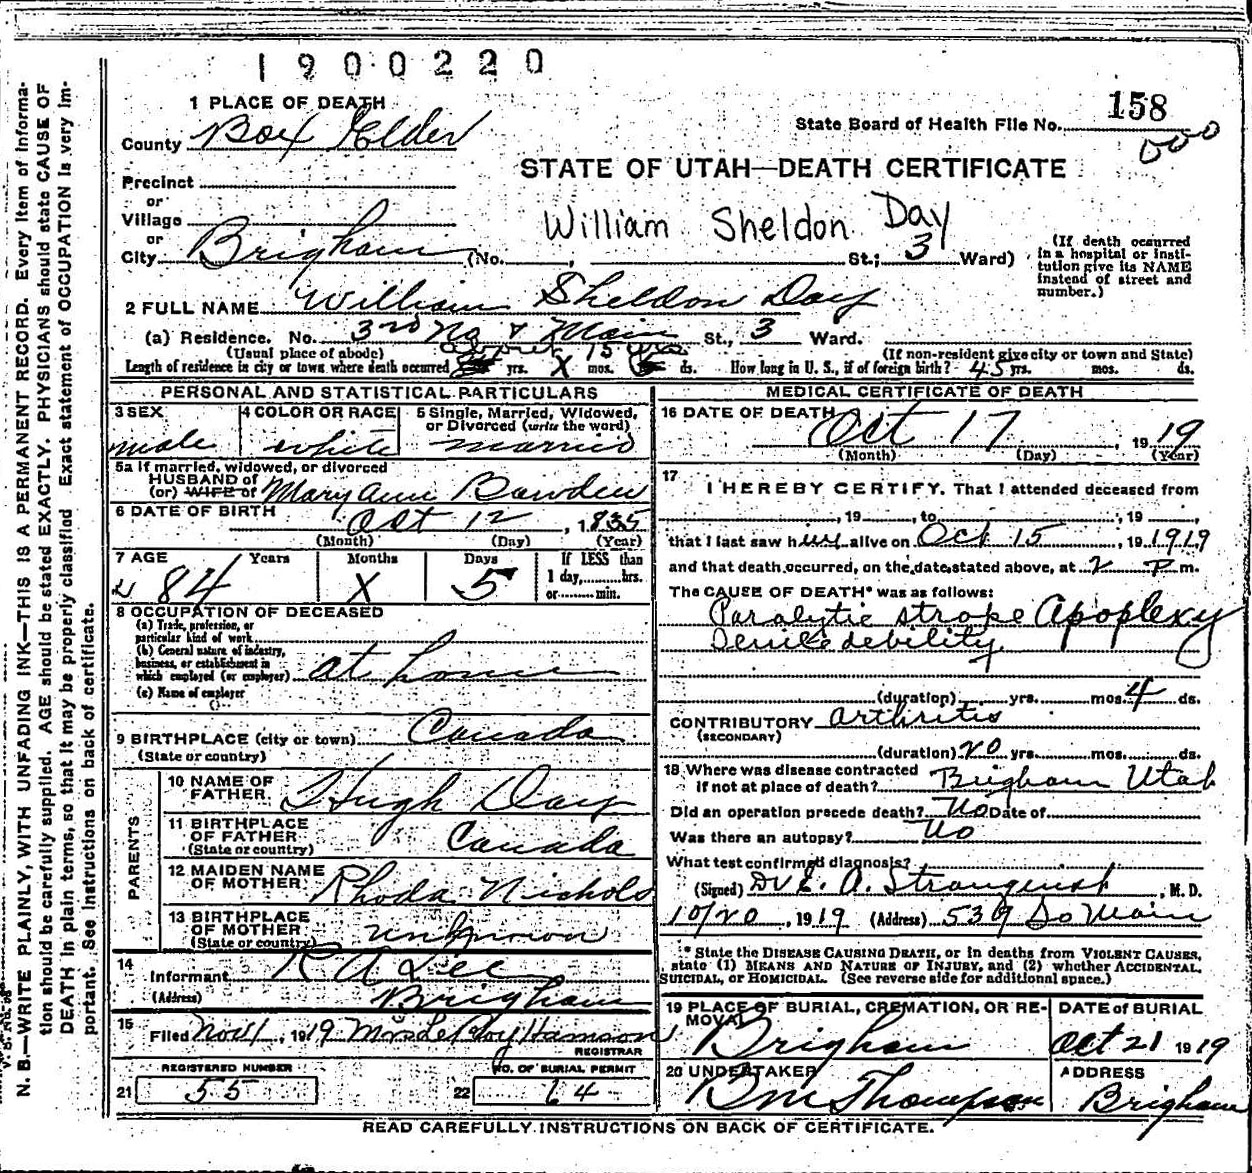 1900220
1 PLACE OF DEATH
158
County Box Elder
State Board of Health File No.
000
STATE OF UTAH—DEATH CERTIFICATE
Precinct
or
Village
William Sheldon Day
or
City Brigham (No. , St.; 3 Ward)
(If death occurred in a hospital or institution give its NAME instead of street and number.)
2 FULL NAME William Sheldon Day
(a) Residence. No. 3rd No & Main St., 3 Ward.
(Usual place of abode)
(If non-resident give city or town and State)
Length of residence in city or town where death occurred yrs. X mos. ds. 15
How long in U. S., if of foreign birth? 45 yrs. mos. ds.
PERSONAL AND STATISTICAL PARTICULARS
3 SEX
male
4 COLOR OR RACE
white
5 Single, Married, Widowed, or Divorced (write the word)
married
5a If married, widowed, or divorced
HUSBAND of
(or) WIFE of Mary Ann Bowden
6 DATE OF BIRTH
Oct 12, 1835
(Month) (Day) (Year)
7 AGE Years Months Days
84 X 5
If LESS than
1 day, hrs.
or min.
8 OCCUPATION OF DECEASED
(a) Trade, profession, or
particular kind of work
(b) General nature of industry,
business, or establishment in
which employed (or employer) at home
(c) Name of employer
9 BIRTHPLACE (city or town) Canada
(State or country)
PARENTS
10 NAME OF FATHER Hugh Day
11 BIRTHPLACE OF FATHER Canada
(State or country)
12 MAIDEN NAME OF MOTHER Rhoda Nichols
13 BIRTHPLACE OF MOTHER unknown
(State or country)
14
Informant R A Lee
(Address) Brigham
15
Filed Nov 1, 1919 Mrs Le Roy
REGISTRAR
REGISTERED NUMBER
21 55
NO. OF BURIAL PERMIT
22 64
MEDICAL CERTIFICATE OF DEATH
16 DATE OF DEATH
Oct 17, 1919
(Month) (Day) (Year)
17
I HEREBY CERTIFY, That I attended deceased from
, 19 , to , 19 ,
that I last saw him alive on Oct 15, 19 1919
and that death occurred, on the date stated above, at 2 P m.
The CAUSE OF DEATH* was as follows:
Paralytic stroke Apoplexy
Senile debility
(duration) yrs. mos. 4 ds.
CONTRIBUTORY arthritis
(SECONDARY)
(duration) 20 yrs. mos. ds.
18 Where was disease contracted
if not at place of death? Brigham Utah
Did an operation precede death? No Date of
Was there an autopsy? No
What test confirmed diagnosis?
(Signed) Dr E. A. , M. D.
10/20, 1919 (Address) 539 So Main
* State the DISEASE CAUSING DEATH, or in deaths from VIOLENT CAUSES,
state (1) MEANS AND NATURE OF INJURY, and (2) whether ACCIDENTAL,
SUICIDAL, OR HOMICIDAL. (See reverse side for additional space.)
19 PLACE OF BURIAL, CREMATION, OR REMOVAL
Brigham
DATE OF BURIAL
Oct 21 1919
20 UNDERTAKER
B M Thompson
ADDRESS
Brigham
READ CAREFULLY INSTRUCTIONS ON BACK OF CERTIFICATE.
N. B.—WRITE PLAINLY, WITH UNFADING INK—THIS IS A PERMANENT RECORD. Every item of informa-
tion should be carefully supplied. AGE should be stated EXACTLY. PHYSICIANS should state CAUSE OF
DEATH in plain terms, so that it may be properly classified. Exact statement of OCCUPATION is very im-
portant. See instructions on back of certificate.